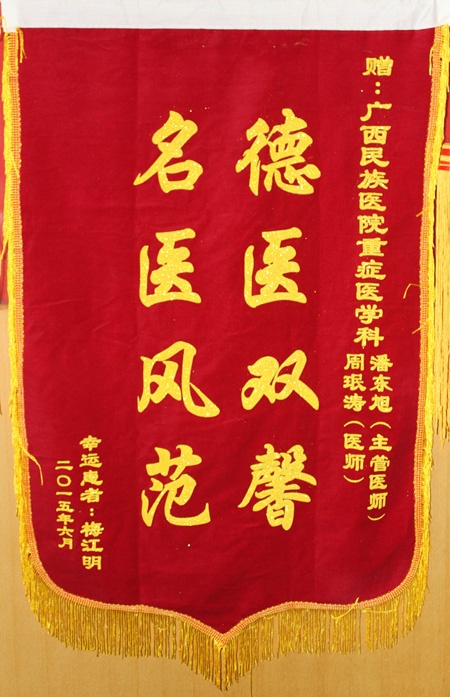 赠：广西民族医院重症医学科
潘东旭（主管医师）
周珉涛（医师）
德医双馨
名医风范
幸运患者：梅江明
二〇一五年六月